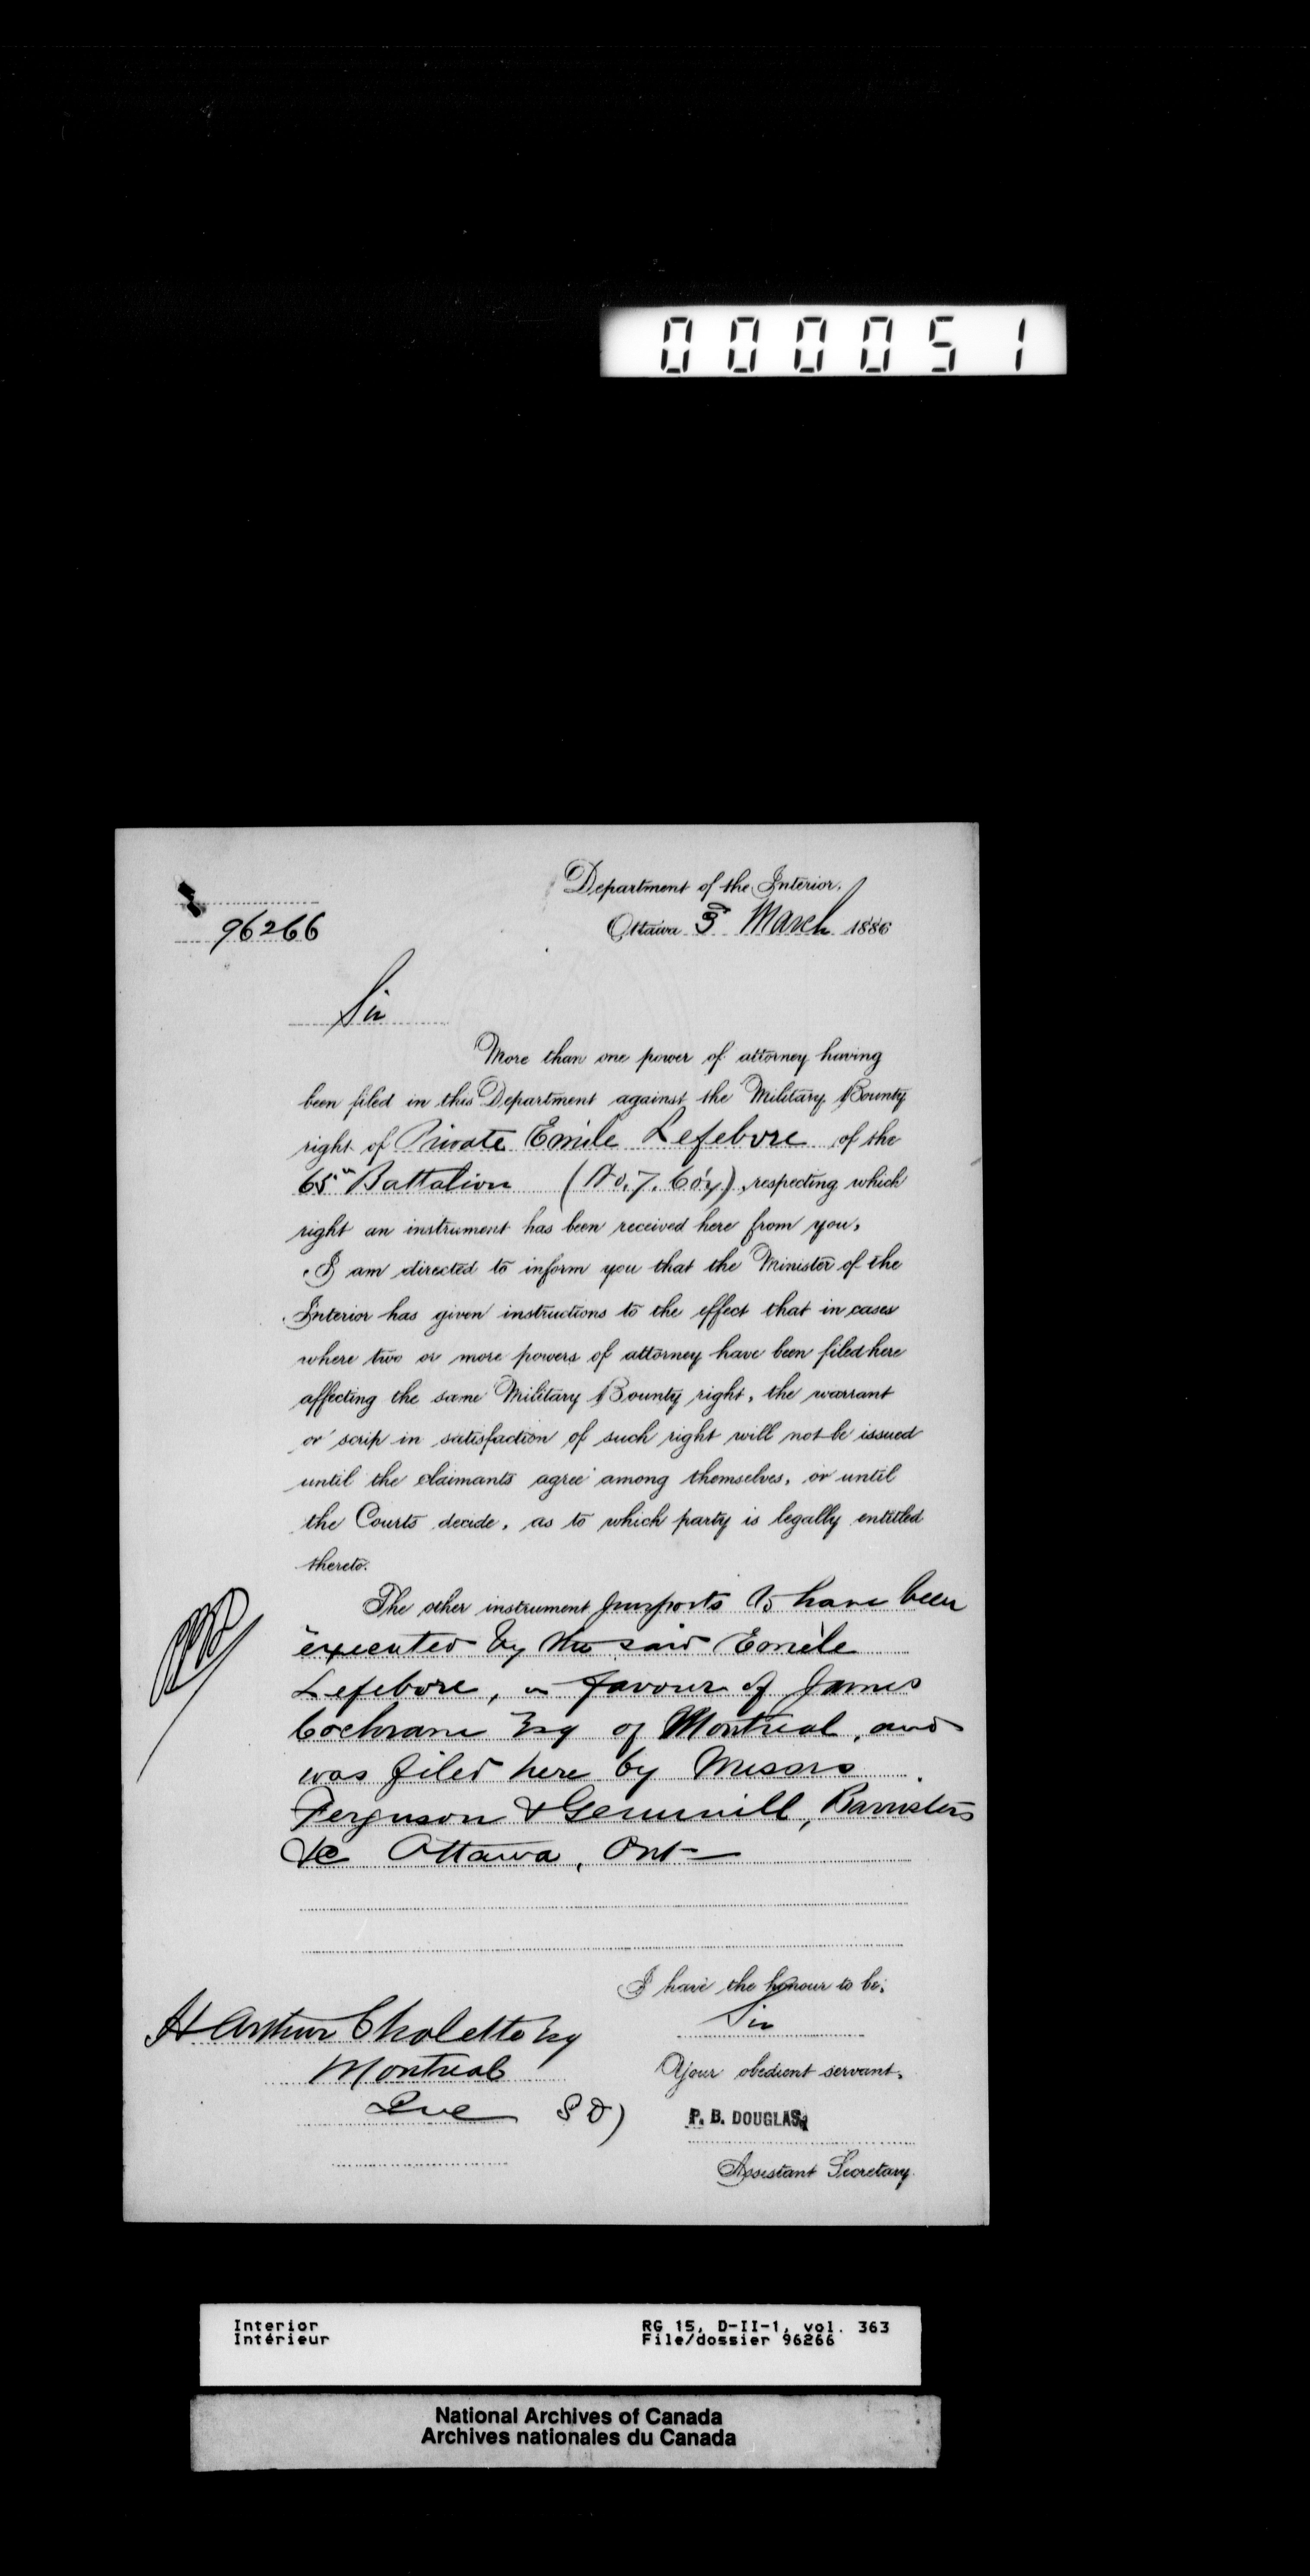 000051
Department of the Interior.
96266
Ottawa 3d March 1886
Sir
More than one power of attorney having
been filed in this Department against the Military Bounty
right of Private Emile Lefebvre of the
65th Battalion (No. 7. Co'y), respecting which
right an instrument has been received here from you,
I am directed to inform you that the Minister of the
Interior has given instructions to the effect that in cases
where two or more powers of attorney have been filed here
affecting the same Military Bounty right, the warrant
or scrip in satisfaction of such right will not be issued
until the claimants agree among themselves, or until
the Courts decide, as to which party is legally entitled
thereto.
The other instrument purports to have been
executed by the said Emile
Lefebvre, in favour of James
Cochrane Esq of Montreal, and
was filed here by Messrs
Ferguson & Gemmill, Barristers
&c Ottawa, Ont
I have the honour to be,
Sir
H Arthur Cholette Esq
Montreal
Your obedient servant,
Que
P. B. DOUGLAS,
Assistant Secretary.
Interior RG 15, D-II-1, vol. 363
Intérieur File/dossier 96266
National Archives of Canada
Archives nationales du Canada